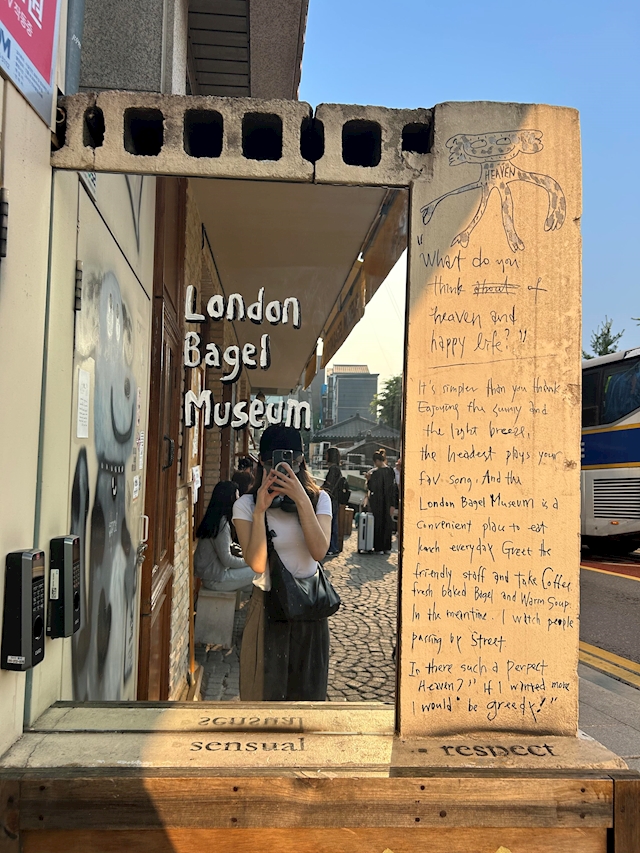 London
Bagel
Museum
HEAVEN
"What do you
think about of
heaven and
happy life?"
It's simpler than you think
Enjoying the sunny and
the light breeze,
the headset plays your
fav song. And the
London Bagel Museum is a
convenient place to eat
lunch everyday. Greet the
friendly staff and take Coffee,
fresh baked Bagel and Warm Soup.
In the meantime. I watch people
passing by street
Is there such a perfect
Heaven? " If I wanted more
I would be greedy!"
sensual
respect